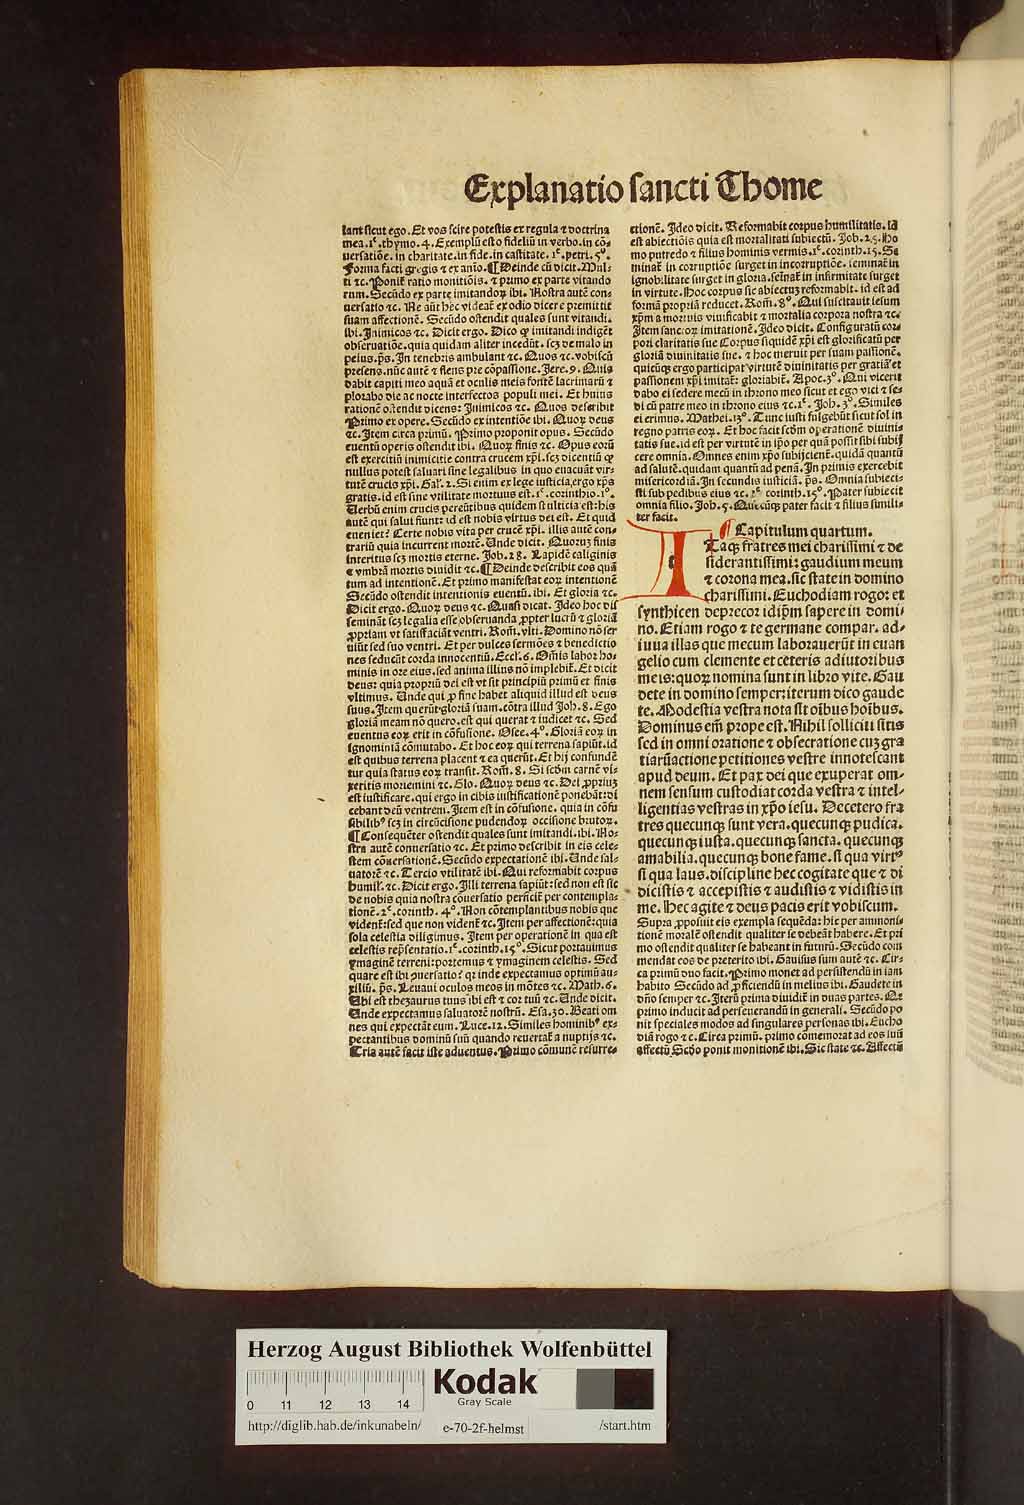 Explanatio sancti Thome
lant sicut ego. Et vos scire potestis ex regula ⁊ doctrina
mea. 1ᵉ. thymo. 4. Exemplū esto fideliū in verbo. in cō⸗
uersatiōe. in charitate. in fide. in castitate. 1ᵉ. petri. 5°.
Forma facti gregis ⁊ ex anīo. ¶ Deinde cū dicit. Mul⸗
ti ⁊c. Ponit̄ ratio monitiōis. ⁊ primo ex parte vitando
rum. Secūdo ex parte imitandoꝝ ibi. Nostra autē con⸗
uersatio ⁊c. Ne aūt hec videat̄ ex odio dicere premittit
suam affectionē. Secūdo ostendit quales sunt vitandi.
ibi. Inimicos ⁊c. Dicit ergo. Dico ꝙ imitandi indigēt
obseruatiōe. quia quidam aliter incedūt. scꝫ de malo in
peius. p̄s. In tenebris ambulant ⁊c. Quos ⁊c. vobiscū
presens. nūc autē ⁊ flens pre cōpassione. Jere. 9. Quis
dabit capiti meo aquā et oculis meis fontē lacrimarū ⁊
plorabo die ac nocte interfectos populi mei. Et huius
rationē ostendit dicens: Inimicos ⁊c. Quos describit
Primo ex opere. Secūdo ex intentiōe ibi. Quoꝝ deus
⁊c. Item circa primū. Primo proponit opus. Secūdo
euentū operis ostendit ibi. Quoꝝ finis ⁊c. Opus eorū
est exercitiū inimicitie contra crucem xp̄i. scꝫ dicentiū ꝙ
nullus potest saluari sine legalibus in quo euacuāt vir⸗
tutē crucis xp̄i. Gal. 2. Si enim ex lege iusticia, ergo xp̄s
gratis. id est sine vtilitate mortuus est. 1ᵉ. corinthio. 1°.
Verbū enim crucis pereūtibus quidem stulticia est: his
autē qui salui fiunt: id est nobis virtus dei est. Et quid
eueniet? Certe nobis vita per crucē xp̄i. illis autē con⸗
trariū quia incurrent mortē. Unde dicit. Quoruꝫ finis
interitus scꝫ mortis eterne. Job. 28. Lapidē caliginis
⁊ vmbrā mortis diuidit ⁊c. ¶ Deinde describit eos quā
tum ad intentionē. Et primo manifestat eoꝝ intentionē
Secūdo ostendit intentionis euentū. ibi. Et gloria ⁊c.
Dicit ergo. Quoꝝ deus ⁊c. Quasi dicat. Ideo hoc dis
semināt scꝫ legalia esse obseruanda ꝓpter lucrū ⁊ gloriā
ꝓpriam vt satisfaciāt ventri. Rom̄. vlti. Domino nō ser
uiūt sed suo ventri. Et per dulces sermōes ⁊ benedictio
nes seducūt corda innocentiū. Eccl̄. 6. Om̄is labor ho⸗
minis in ore eius. sed anima illius nō implebit̄. Et dicit
deus: quia propriū dei est vt sit principiū primū et finis
vltimus. Unde qui ꝓ fine habet aliquid illud est deus
suus. Item querūt gloriā suam. cōtra illud Joh. 8. Ego
gloriā meam nō quero. est qui querat ⁊ iudicet ⁊c. Sed
euentus eoꝝ erit in cōfusione. Osee. 4°. Gloriā eoꝝ in
ignominiā cōmutabo. Et hoc eoꝝ qui terrena sapiūt. id
est quibus terrena placent ⁊ ea querūt. Et hij confundē
tur quia status eoꝝ transit. Rom̄. 8. Si scd̄m carnē vi⸗
xeritis moriemini ⁊c. Glo. Quoꝝ deus ⁊c. Dei ꝓpriuꝫ
est iustificare. qui ergo in cibis iustificationē ponebāt: di
cebant deū ventrem. Item est in cōfusione. quia in cōfu
sibilibꝰ scꝫ in circūcisione pudendoꝝ occisione brutoꝝ.
¶ Consequēter ostendit quales sunt imitandi. ibi. No⸗
stra autē conuersatio ⁊c. Et primo describit in eis cele⸗
stem cōuersationē. Secūdo expectationē ibi. Unde sal⸗
uatorē ⁊c. Tercio vtilitatē ibi. Qui reformabit corpus
humil̄. ⁊c. Dicit ergo. Illi terrena sapiūt: sed non est sic
de nobis quia nostra cōuersatio perficit̄ per contempla⸗
tionē. 2ᵉ. corinth. 4°. Non cōtemplantibus nobis que
vident̄: sed que non vident̄ ⁊c. Item per affectionē: quia
sola celestia diligimus. Item per operationē in qua est
celestis repn̄tatio. 1ᵉ. corinth. 15°. Sicut portauimus
ymaginē terreni: portemus ⁊ ymaginem celestis. Sed
quare est ibi ꝯuersatio? qꝛ inde expectamus optimū au⸗
xiliū. p̄s. Leuaui oculos meos in mōtes ⁊c. Math. 6.
Ubi est thezaurus tuus ibi est ⁊ cor tuū ⁊c. Unde dicit.
Unde expectamus saluatorē nostrū. Esa. 30. Beati om
nes qui expectāt eum. Luce. 12. Similes hominibꝰ ex⸗
pectantibus dominū suū quando reuertat̄ a nuptijs ⁊c.
Tria autē facit iste aduentus. Primo cōmunē resurre⸗
ctionē. Ideo dicit. Reformabit corpus humilitatis. id
est abiectiōis quia est mortalitati subiectū. Job. 25. Ho
mo putredo ⁊ filius hominis vermis. 1ᵉ. corinth. 15. Se
minat̄ in corruptiōe surget in incorruptiōe. seminat̄ in
ignobilitate surget in gloria. semīat̄ in infirmitate surget
in virtute. Hoc corpus sic abiectuꝫ reformabit. id est ad
formā propriā reducet. Rom̄. 8°. Qui suscitauit iesum
xp̄m a mortuis viuificabit ⁊ mortalia corpora nostra ⁊c.
Item sanctoꝝ imitationē. Ideo dicit. Configuratū cor⸗
pori claritatis sue Corpus siquidē xp̄i est glorificatū per
gloriā diuinitatis sue. ⁊ hoc meruit per suam passionē.
quicūqꝫ ergo participat virtutē diuinitatis per gratiā et
passionem xp̄i imitat̄: gloriabit̄. Apoc. 3°. Qui vicerit
dabo ei sedere mecū in throno meo sicut et ego vici ⁊ se⸗
di cū patre meo in throno eius ⁊c. 1ᵉ. Joh. 3°. Similes
ei erimus. Mathei. 13°. Tunc iusti fulgebūt sicut sol in
regno patris eoꝝ. Et hoc facit scd̄m operationē diuini⸗
tatis sue. id est per virtutē in ip̄o per quā possit sibi subij
cere omnia. Omnes enim xp̄o subijcient̄. quidā quantū
ad salutē. quidam quantū ad penā. In primis exercebit
misericordiā. In secundis iusticiā. p̄s. Omnia subieci⸗
sti sub pedibus eius ⁊c. 1ᵉ corinth. 15°. Pater subiecit
omnia filio. Joh. 5. Quecūqꝫ pater facit ⁊ filius simili⸗
ter facit.
¶ Capitulum quartum.
ITaqꝫ fratres mei charissimi ⁊ de
siderantissimi: gaudium meum
⁊ corona mea. sic state in domino
charissimi. Euchodiam rogo: et
synthicen deprecor idip̄m sapere in domi⸗
no. Etiam rogo ⁊ te germane compar. ad⸗
iuua illas que mecum laborauerūt in euan
gelio cum clemente et ceteris adiutoribus
meis: quoꝝ nomina sunt in libro vite. Gau
dete in domino semper: iterum dico gaude
te. Modestia vestra nota sit oībus hoībus.
Dominus em̄ prope est. Nihil solliciti sitis
sed in omni oratione ⁊ obsecratione cuꝫ gra
tiarū actione petitiones vestre innotescant
apud deum. Et pax dei que exuperat om⸗
nem sensum custodiat corda vestra ⁊ intel⸗
ligentias vestras in xp̄o iesu. De cetero fra
tres quecunqꝫ sunt vera. quecunqꝫ pudica.
quecunqꝫ iusta. quecunqꝫ sancta. quecunqꝫ
amabilia. quecunqꝫ bone fame. si qua virtꝰ
si qua laus. discipline hec cogitate que ⁊ di
dicistis ⁊ accepistis ⁊ audistis ⁊ vidistis in
me. Hec agite ⁊ deus pacis erit vobiscum.
Supra ꝓposuit eis exempla sequēda: hic per ammoni⸗
tionē moralē ostendit qualiter se debeāt habere. Et pri
mo ostendit qualiter se habeant in futurū. Secūdo com
mendat eos de preterito ibi. Gauisus sum autē ⁊c. Cir⸗
ca primū duo facit. Primo monet ad persistendū in iam
habito Secūdo ad ꝓficiendū in melius ibi. Gaudete in
dn̄o semper ⁊c. Iterū prima diuidit̄ in duas partes. Qꝛ
primo inducit ad perseuerandū in generali. Secūdo po
nit speciales modos ad singulares personas ibi. Eucho
diā rogo ⁊c. Circa primū. primo cōmemorat ad eos suū
affectū Scd̄o ponit monitionē ibi. Sic state ⁊c. Affectū
Herzog August Bibliothek Wolfenbüttel
0 11 12 13 14
Kodak
Gray Scale
http://diglib.hab.de/inkunabeln/ e-70-2f-helmst /start.htm